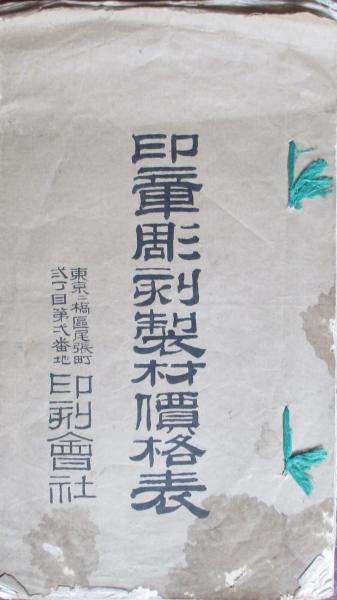 印章彫刻製材價格表
東京京橋區尾張町
弐丁目第弐番地
印刻會社